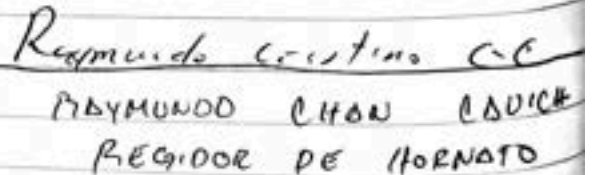 Raymundo Cristino C-C
RAYMUNDO CHAN CAUICH
REGIDOR DE HORNATO